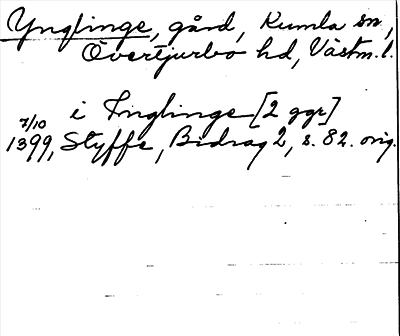 Ynglinge, gård, Kumla sn,
Övertjurbo hd, Västm.l.
i Inglinge [2 ggr]
7/10
1399, Styffe, Bidrag 2, s. 82. orig.